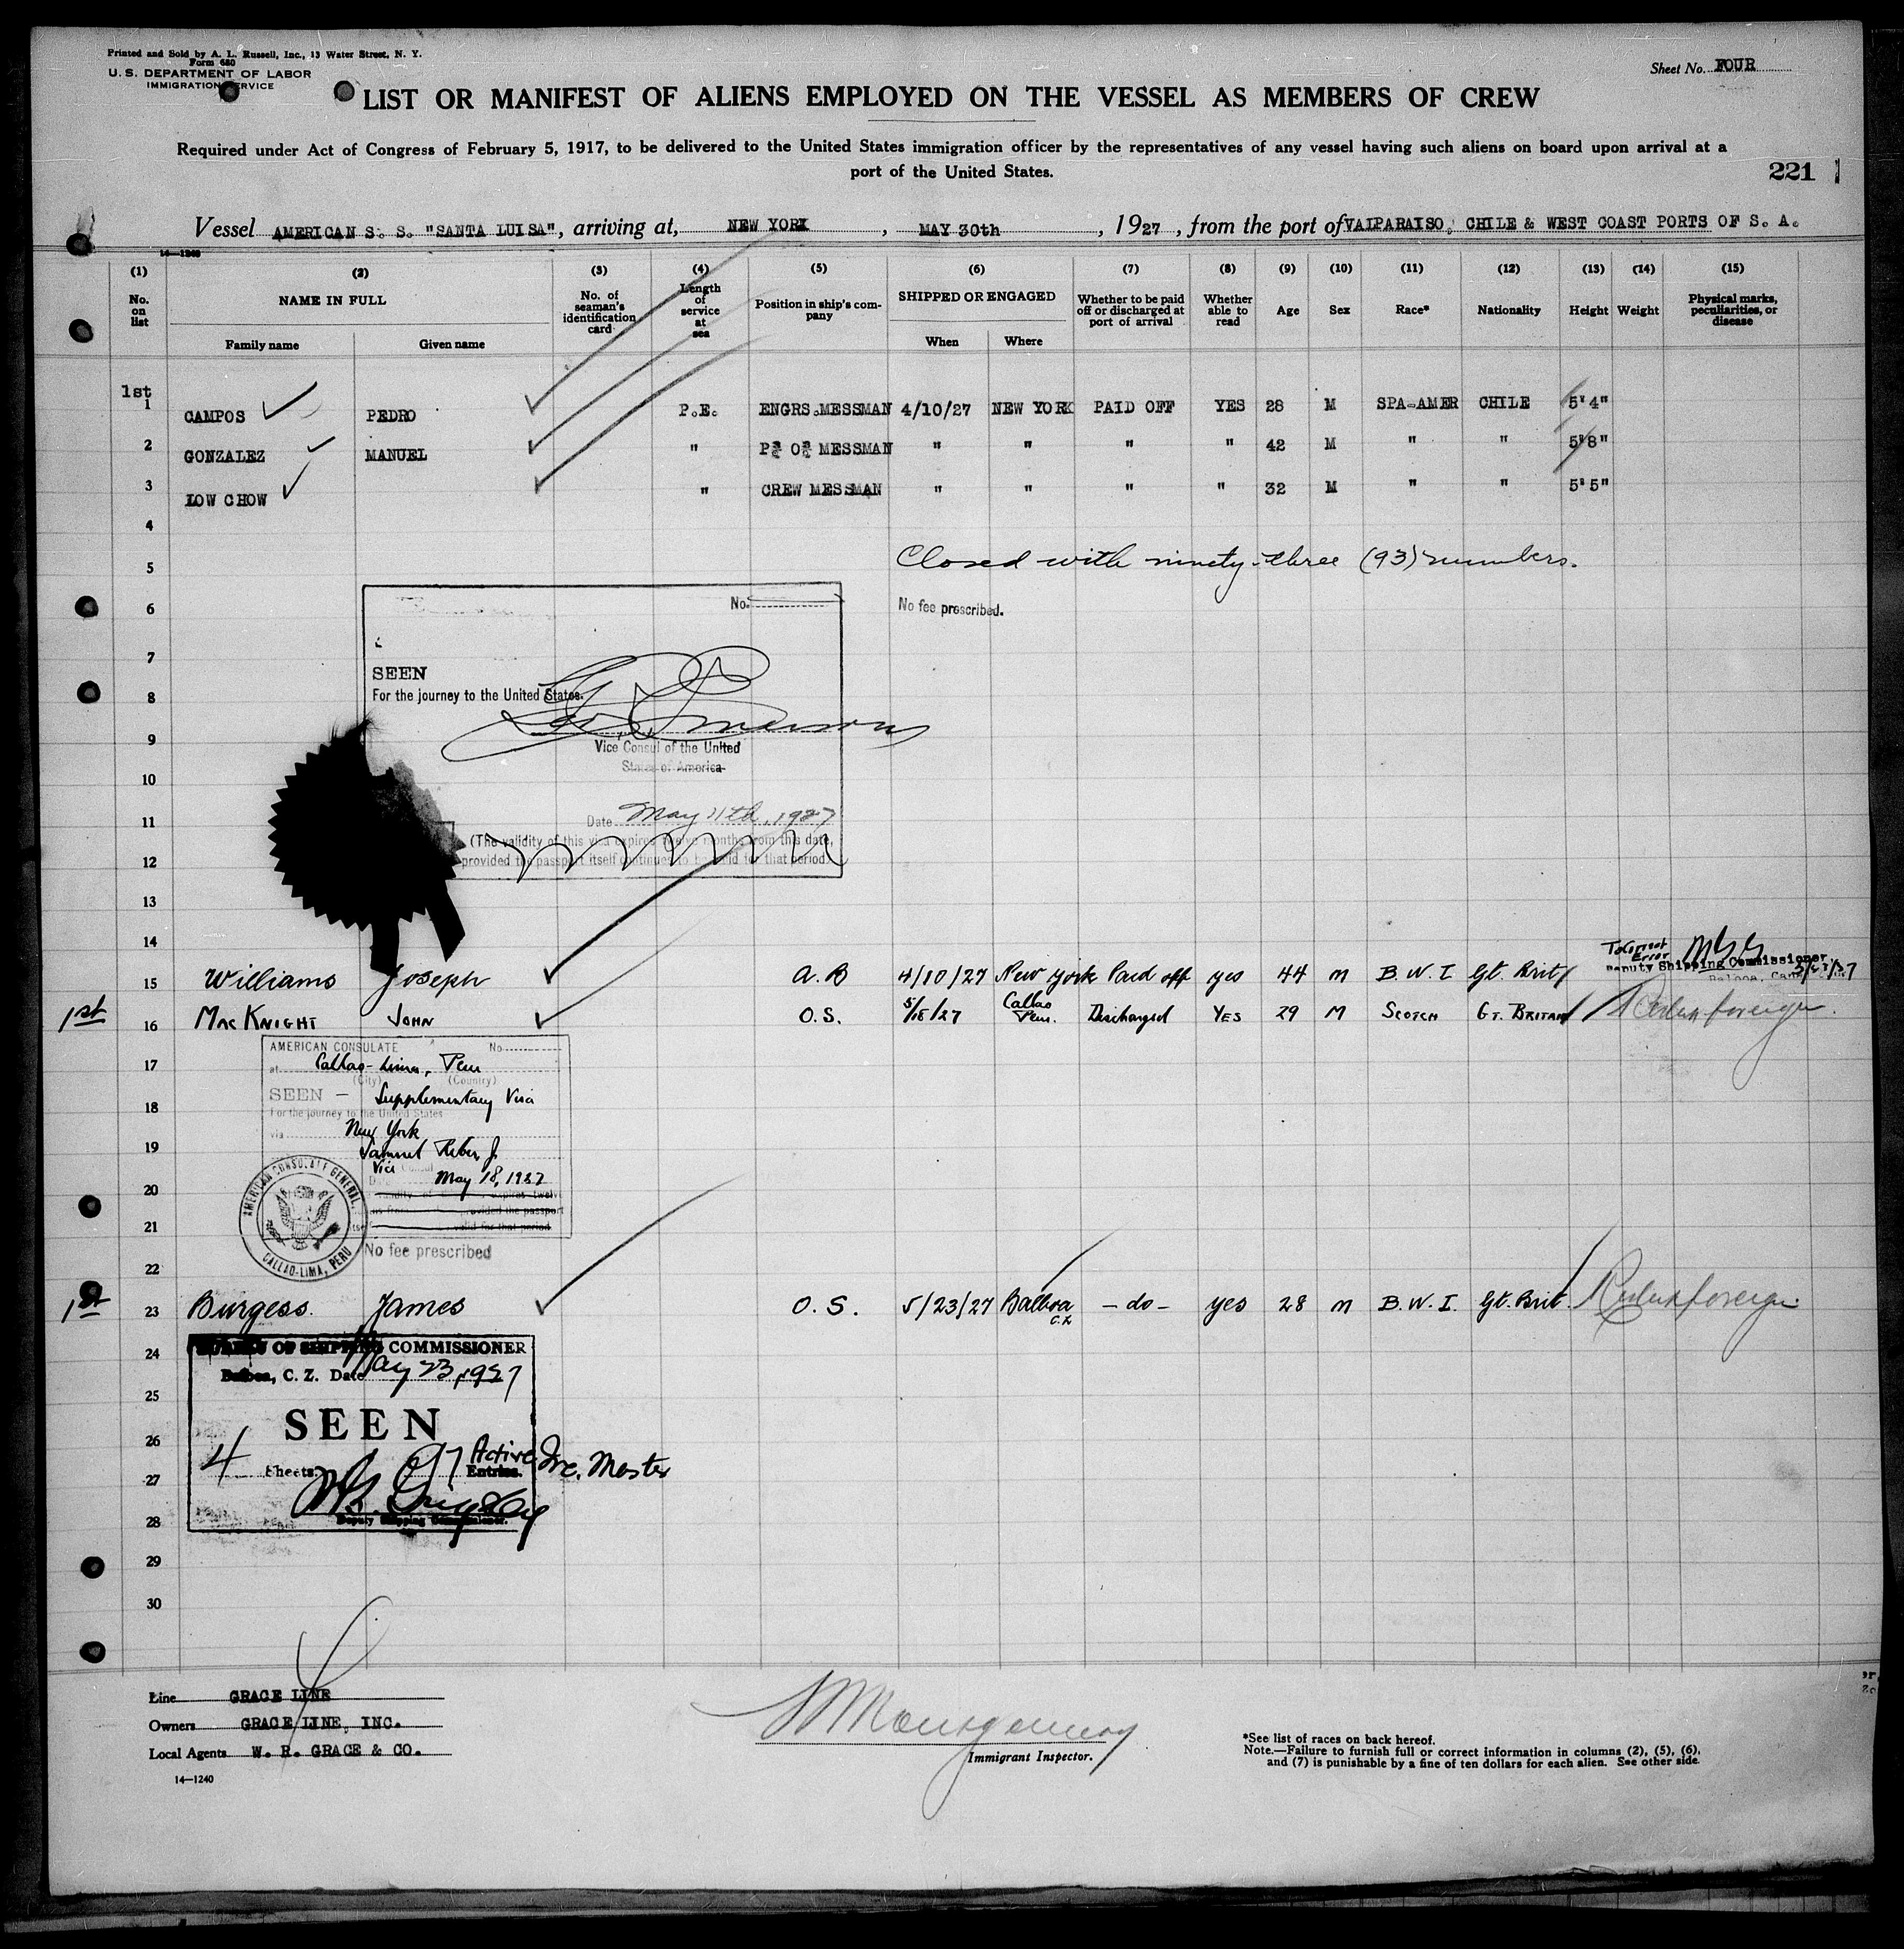 Printed and Sold by A. L. Russell, Inc., 13 Water Street, N. Y.
Form 680
U. S. DEPARTMENT OF LABOR
IMMIGRATION SERVICE
Sheet No. FOUR
LIST OR MANIFEST OF ALIENS EMPLOYED ON THE VESSEL AS MEMBERS OF CREW
Required under Act of Congress of February 5, 1917, to be delivered to the United States immigration officer by the representatives of any vessel having such aliens on board upon arrival at a
port of the United States.
221
Vessel AMERICAN S. S. "SANTA LUISA", arriving at, NEW YORK, MAY 30th, 1927, from the port of VALPARAISO, CHILE & WEST COAST PORTS OF S. A.
14—1240
(1) (2) (3) (4) (5) (6) (7) (8) (9) (10) (11) (12) (13) (14) (15)
No. on list
NAME IN FULL
Family name
Given name
No. of seaman's identification card
Length of service at sea
Position in ship's company
SHIPPED OR ENGAGED
When
Where
Whether to be paid off or discharged at port of arrival
Whether able to read
Age
Sex
Race*
Nationality
Height
Weight
Physical marks, peculiarities, or disease
1st
1 CAMPOS PEDRO P.E. ENGRS.MESSMAN 4/10/27 NEW YORK PAID OFF YES 28 M SPA-AMER CHILE 5'4"
2 GONZALEZ MANUEL " P. O. MESSMAN " " " " 42 M " " 5'8"
3 LOW CHOW " CREW MESSMAN " " " " 32 M " " 5'5"
4
5 Closed with ninety-three (93) numbers.
6 No fee prescribed.
No.
7
SEEN
8 For the journey to the United States.
9
Vice Consul of the United
States of America
10
11 Date May 11th, 1927
(The validity of this visa expires twelve months from this date,
12 provided the passport itself continues to be valid for that period.
13
14
To Correct Error
Deputy Shipping Commissioner
15 Williams Joseph A.B 4/10/27 New York Paid off yes 44 m B.W.I Gt. Brit
1st 16 MacKnight John O.S. 5/18/27 Callao Peru. Discharged Yes 29 M Scotch Gt. Britain
AMERICAN CONSULATE No.
17 at Callao-Lima, Peru
(City) (Country)
SEEN — Supplementary Visa
18 For the journey to the United States
via New York
19
Vice Consul
Date May 18, 1927
20
21
AMERICAN CONSULATE GENERAL, CALLAO-LIMA, PERU
No fee prescribed
22
1st 23 Burgess. James O.S. 5/23/27 Balboa C.Z — do — yes 28 m B.W.I. Gt. Brit.
BUREAU OF SHIPPING COMMISSIONER
24 Balboa, C. Z. Date May 23, 1927
25
SEEN
26
4 Sheets. 97 Active Entries. Inc. Master
27
28 Deputy Shipping Commissioner.
29
30
Line GRACE LINE
Owners GRACE LINE, INC.
Local Agents W. R. GRACE & CO.
14—1240
Montgomery
Immigrant Inspector.
*See list of races on back hereof.
Note.—Failure to furnish full or correct information in columns (2), (5), (6),
and (7) is punishable by a fine of ten dollars for each alien. See other side.